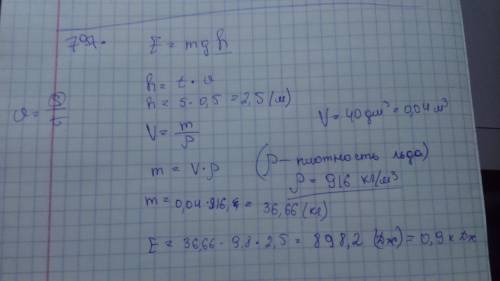 797.
E = mgh
h = t · v
v = S/t
h = 5 · 0,5 = 2,5 (м)
V = m/ρ
V = 40 дм³ = 0,04 м³
m = V · ρ
(ρ – плотность льда)
ρ = 916 кг/м³
m = 0,04 · 916, = 36,66 (кг)
E = 36,66 · 9,8 · 2,5 = 898,2 (Дж) = 0,9 кДж